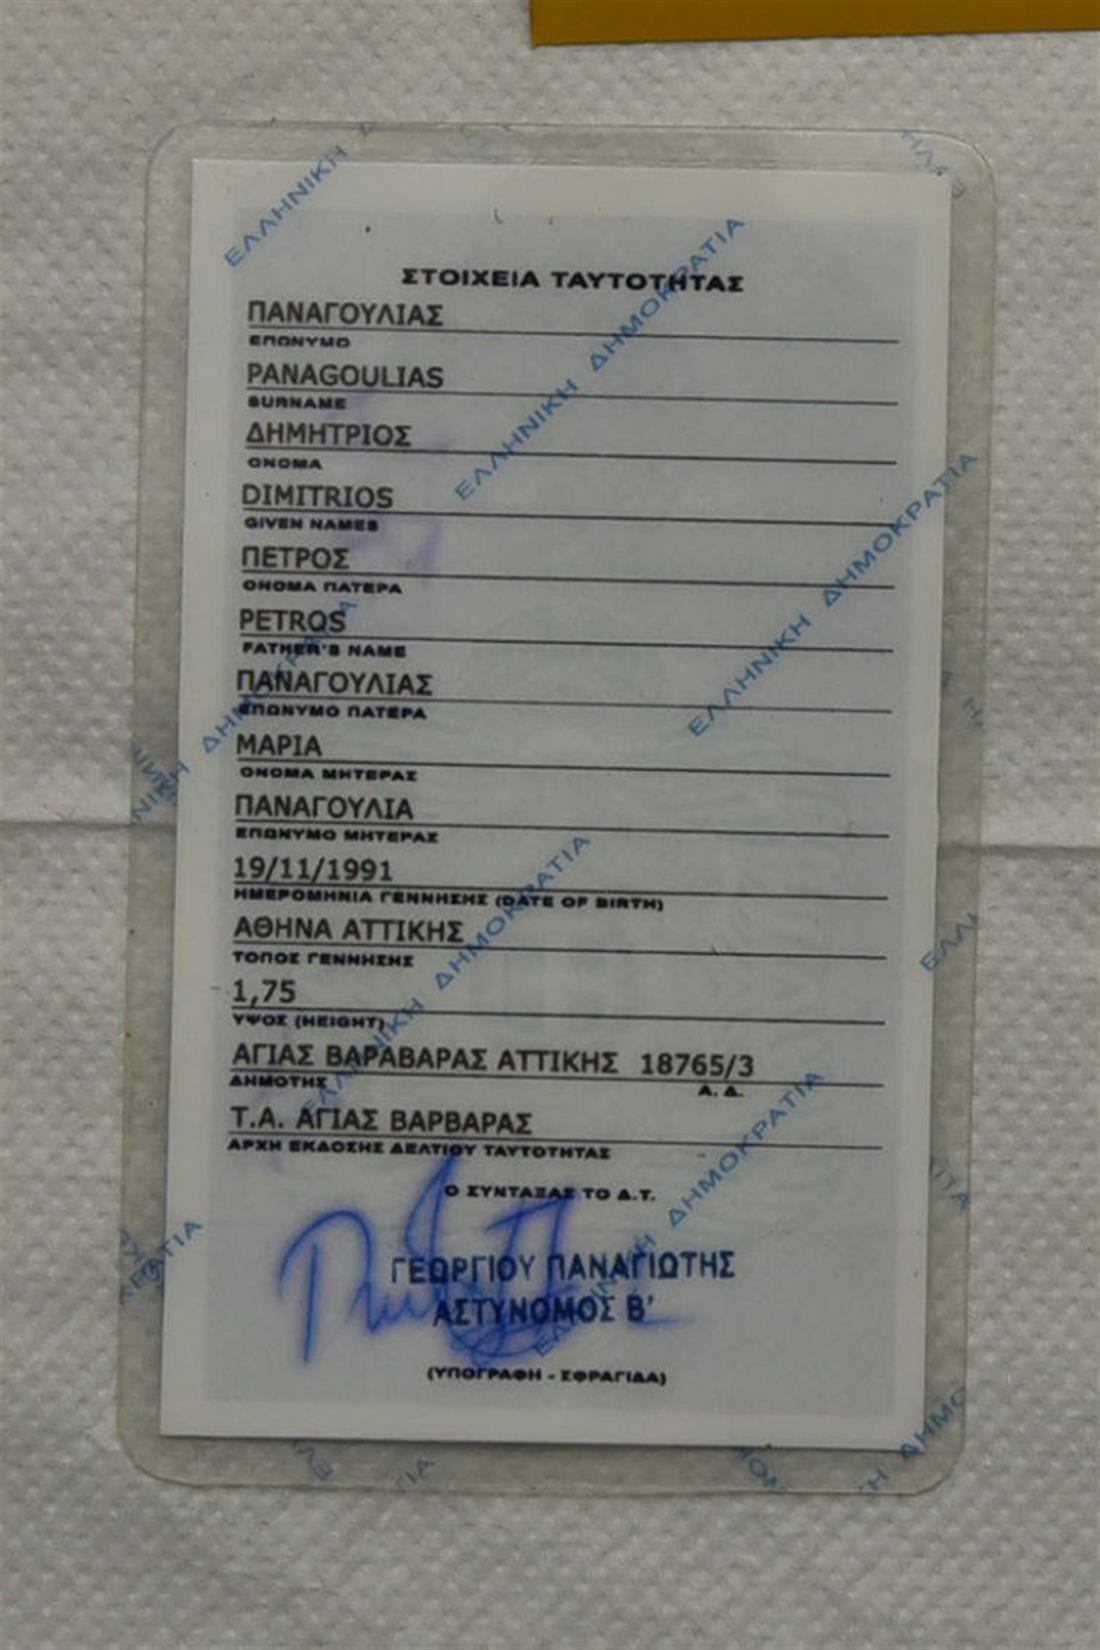 ΣΤΟΙΧΕΙΑ ΤΑΥΤΟΤΗΤΑΣ
ΠΑΝΑΓΟΥΛΙΑΣ
ΕΠΩΝΥΜΟ
PANAGOULIAS
SURNAME
ΔΗΜΗΤΡΙΟΣ
ΟΝΟΜΑ
DIMITRIOS
GIVEN NAMES
ΠΕΤΡΟΣ
ΟΝΟΜΑ ΠΑΤΕΡΑ
PETROS
FATHER'S NAME
ΠΑΝΑΓΟΥΛΙΑΣ
ΕΠΩΝΥΜΟ ΠΑΤΕΡΑ
ΜΑΡΙΑ
ΟΝΟΜΑ ΜΗΤΕΡΑΣ
ΠΑΝΑΓΟΥΛΙΑ
ΕΠΩΝΥΜΟ ΜΗΤΕΡΑΣ
19/11/1991
ΗΜΕΡΟΜΗΝΙΑ ΓΕΝΝΗΣΗΣ (DATE OF BIRTH)
ΑΘΗΝΑ ΑΤΤΙΚΗΣ
ΤΟΠΟΣ ΓΕΝΝΗΣΗΣ
1,75
ΥΨΟΣ (HEIGHT)
ΑΓΙΑΣ ΒΑΡΑΒΑΡΑΣ ΑΤΤΙΚΗΣ 18765/3
ΔΗΜΟΤΗΣ Α. Δ.
Τ.Α. ΑΓΙΑΣ ΒΑΡΒΑΡΑΣ
ΑΡΧΗ ΕΚΔΟΣΗΣ ΔΕΛΤΙΟΥ ΤΑΥΤΟΤΗΤΑΣ
Ο ΣΥΝΤΑΞΑΣ ΤΟ Δ.Τ.
ΓΕΩΡΓΙΟΥ ΠΑΝΑΓΙΩΤΗΣ
ΑΣΤΥΝΟΜΟΣ Β'
(ΥΠΟΓΡΑΦΗ - ΣΦΡΑΓΙΔΑ)
ΕΛΛΗΝΙΚΗ
ΕΛΛΗΝΙΚΗ ΔΗΜΟΚΡΑΤΙΑ
ΕΛΛΗΝΙΚΗ ΔΗΜΟΚΡΑΤΙΑ
ΔΗΜΟΚΡΑΤΙΑ
ΕΛΛΗΝΙΚΗ ΔΗΜΟΚΡΑΤΙΑ
ΕΛΛΗΝΙΚΗ ΔΗΜΟΚΡΑΤΙΑ